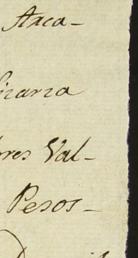 Arca-
inaria
res Val-
Pesos-